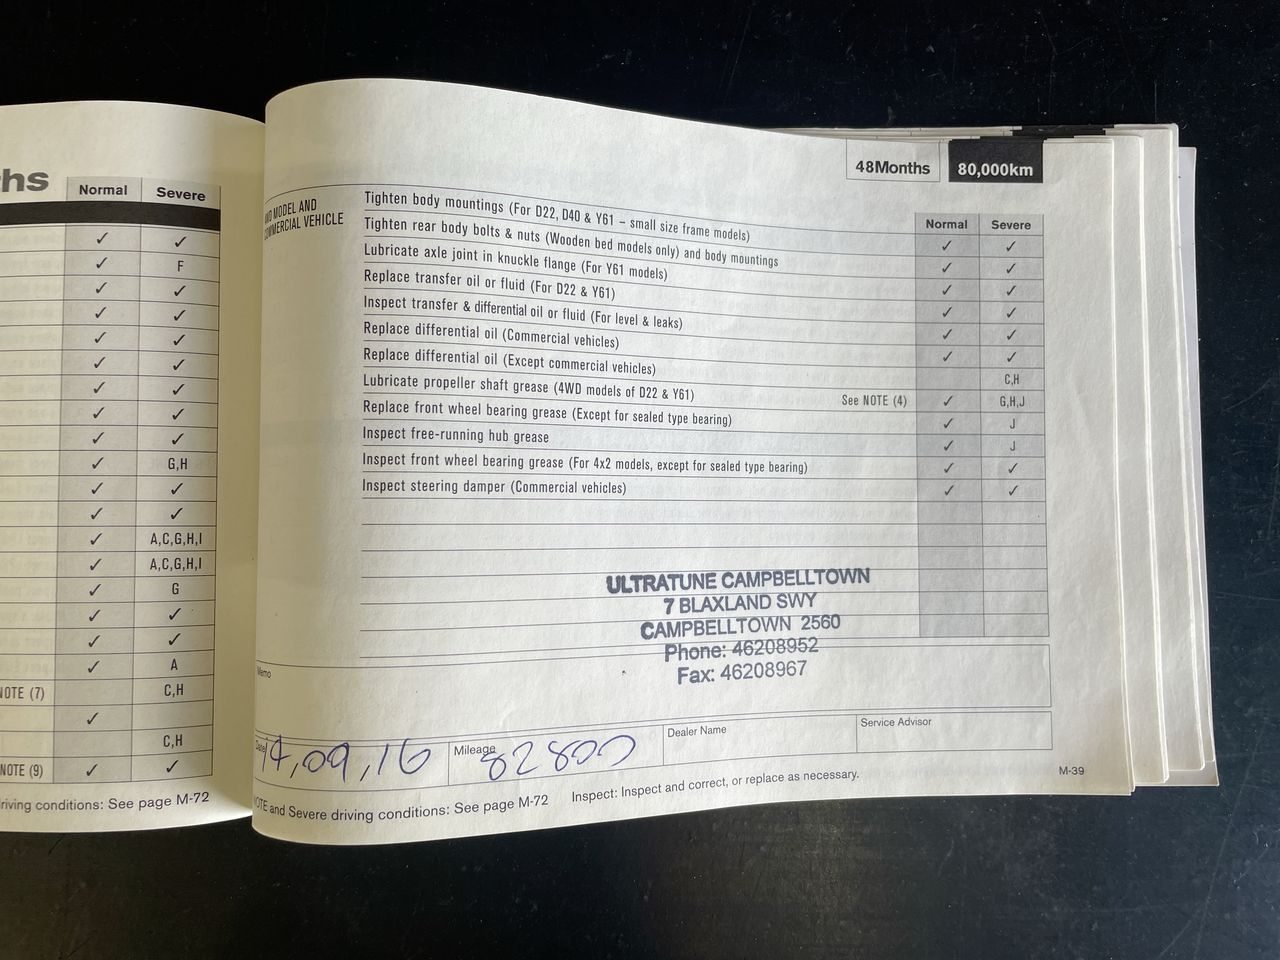 ths
Normal Severe
✓ ✓
✓ F
✓ ✓
✓ ✓
✓ ✓
✓ ✓
✓ ✓
✓ ✓
✓ ✓
✓ G,H
✓ ✓
✓ ✓
✓ A,C,G,H,I
✓ A,C,G,H,I
✓ G
✓ ✓
✓ ✓
✓ A
NOTE (7) C,H
✓
C,H
NOTE (9) ✓ ✓
riving conditions: See page M-72
48Months 80,000km
MODEL AND
COMMERCIAL VEHICLE
Normal Severe
Tighten body mountings (For D22, D40 & Y61 – small size frame models) ✓ ✓
Tighten rear body bolts & nuts (Wooden bed models only) and body mountings ✓ ✓
Lubricate axle joint in knuckle flange (For Y61 models) ✓ ✓
Replace transfer oil or fluid (For D22 & Y61) ✓ ✓
Inspect transfer & differential oil or fluid (For level & leaks) ✓ ✓
Replace differential oil (Commercial vehicles) ✓ ✓
Replace differential oil (Except commercial vehicles) C,H
Lubricate propeller shaft grease (4WD models of D22 & Y61) See NOTE (4) ✓ G,H,J
Replace front wheel bearing grease (Except for sealed type bearing) ✓ J
Inspect free-running hub grease ✓ J
Inspect front wheel bearing grease (For 4x2 models, except for sealed type bearing) ✓ ✓
Inspect steering damper (Commercial vehicles) ✓ ✓
ULTRATUNE CAMPBELLTOWN
7 BLAXLAND SWY
CAMPBELLTOWN 2560
Phone: 46208952
Fax: 46208967
Memo
Date 14,09,16 Mileage 82800 Dealer Name Service Advisor
NOTE and Severe driving conditions: See page M-72 Inspect: Inspect and correct, or replace as necessary. M-39